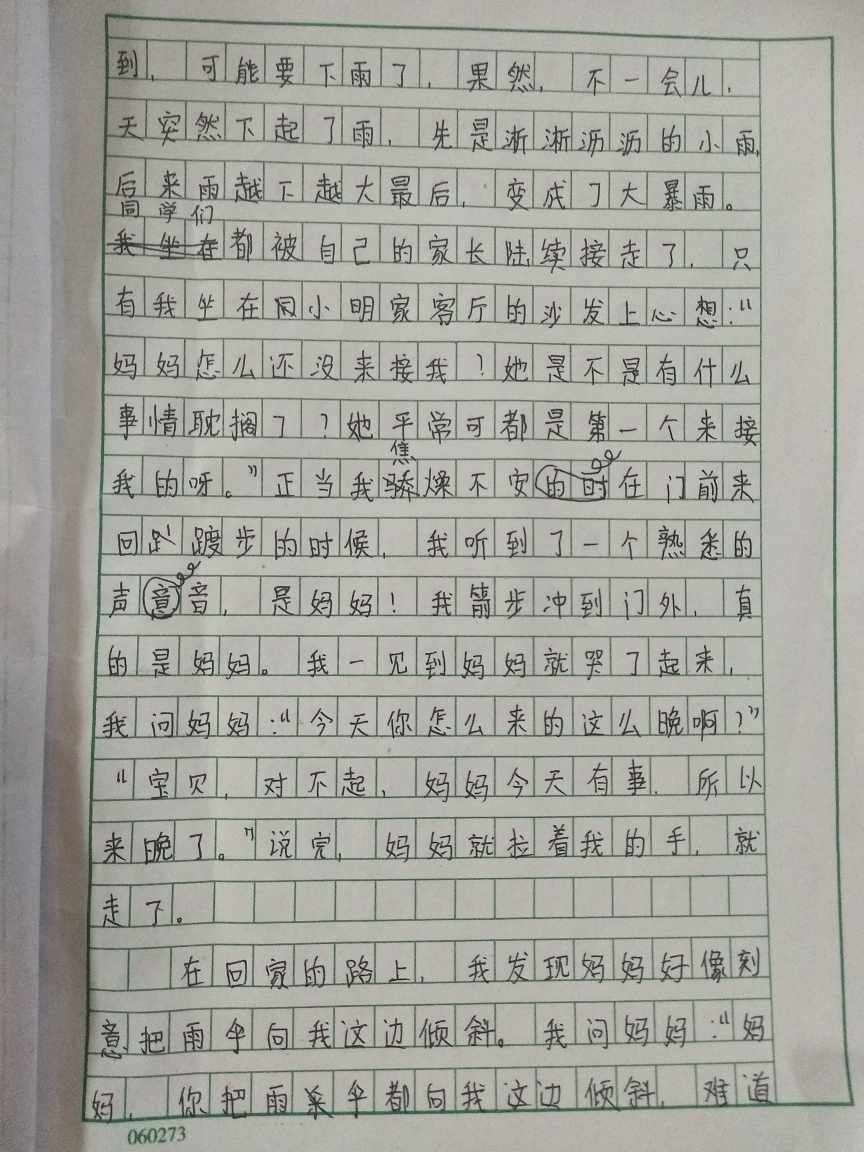 到，可能要下雨了，果然，不一会儿，
天突然下起了雨，先是淅淅沥沥的小雨，
后来雨越下越大最后，变成了大暴雨。
同学们
我坐在都被自己的家长陆续接走了，只
有我坐在同小明家客厅的沙发上心想：“
妈妈怎么还没来接我？她是不是有什么
事情耽搁了？她平常可都是第一个来接
焦
我的呀。”正当我骄燥不安的时在门前来
回踱步的时候，我听到了一个熟悉的
声意音，是妈妈！我箭步冲到门外，真
的是妈妈。我一见到妈妈就哭了起来，
我问妈妈：“今天你怎么来的这么晚啊？”
“宝贝，对不起，妈妈今天有事，所以
来晚了。”说完，妈妈就拉着我的手，就
走下。
在回家的路上，我发现妈妈好像刻
意把雨伞向我这边倾斜。我问妈妈：“妈
妈，你把雨伞都向我这边倾斜，难道
060273